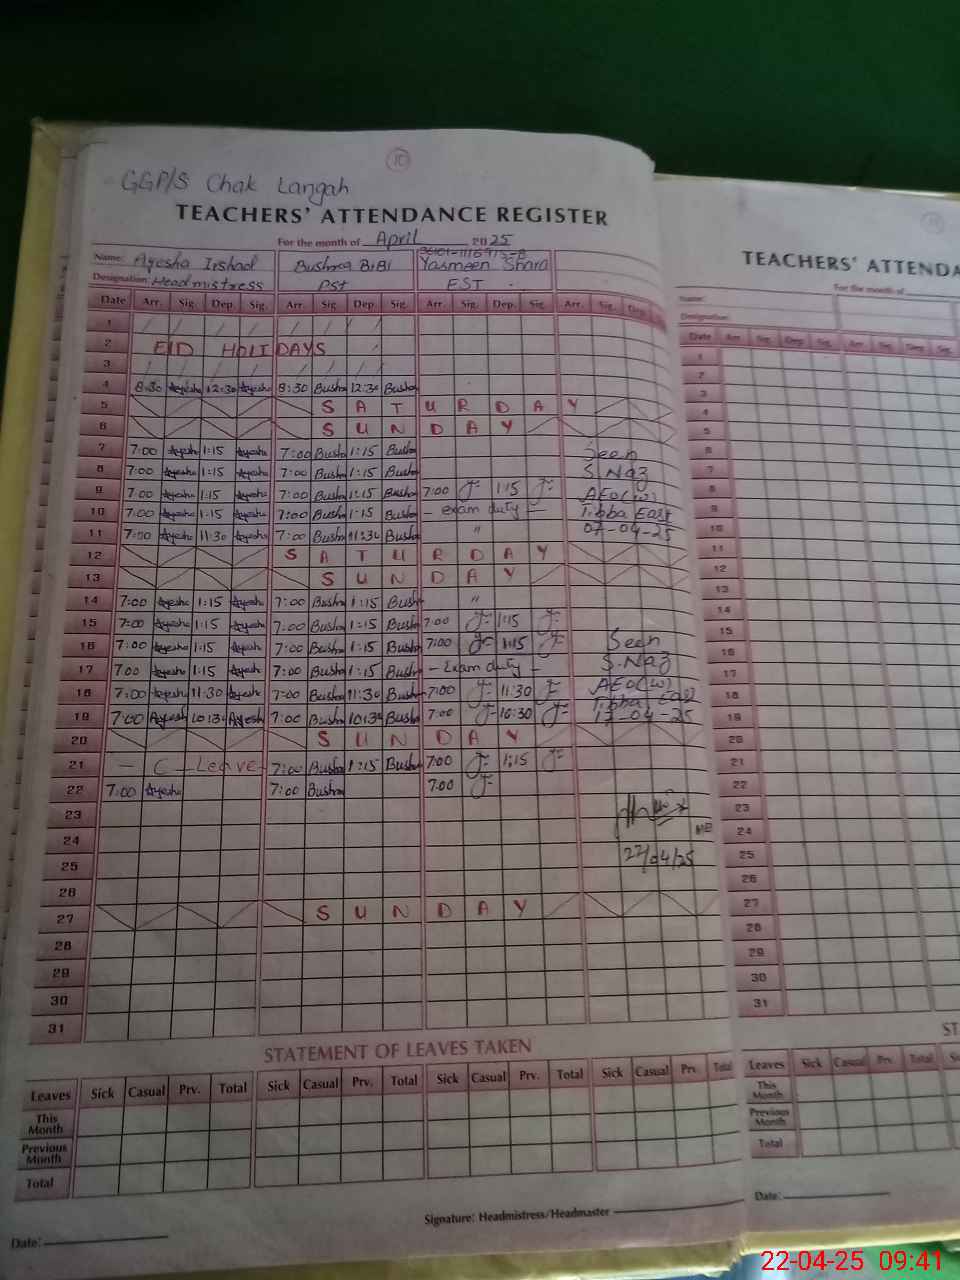 10
GGP/S Chak Langah
TEACHERS' ATTENDANCE REGISTER
For the month of April 2025
Name: Ayesha Irshad Bushra BiBi Yasmeen
Designation: Headmistress Pst EST
Date Arr. Sig. Dep. Sig. Arr. Sig. Dep. Sig. Arr. Sig. Dep. Sig. Arr. Sig. Dep. Sig.
1
2 EID HOLIDAYS
3
4 8:30 Ayesha 12:30 Ayesha 8:30 Bushra 12:30 Bushra
5 SATURDAY
6 SUNDAY
7 7:00 Ayesha 1:15 Ayesha 7:00 Bushra 1:15 Bushra Seen
8 7:00 Ayesha 1:15 Ayesha 7:00 Bushra 1:15 Bushra S.Naz
9 7:00 Ayesha 1:15 Ayesha 7:00 Bushra 1:15 Bushra 7:00 1:15 AEO(W)
10 7:00 Ayesha 1:15 Ayesha 7:00 Bushra 1:15 Bushra - exam duty - Tibba East
11 7:00 Ayesha 11:30 Ayesha 7:00 Bushra 11:30 Bushra " 07-04-25
12 SATURDAY
13 SUNDAY
14 7:00 Ayesha 1:15 Ayesha 7:00 Bushra 1:15 Bushra "
15 7:00 Ayesha 1:15 Ayesha 7:00 Bushra 1:15 Bushra 7:00 1:15
16 7:00 Ayesha 1:15 Ayesha 7:00 Bushra 1:15 Bushra 7:00 1:15 Seen
17 7:00 Ayesha 1:15 Ayesha 7:00 Bushra 1:15 Bushra - Exam duty - S.Naz
18 7:00 Ayesha 11:30 Ayesha 7:00 Bushra 11:30 Bushra 7:00 11:30 AEO(W)
Tibba East
19 7:00 Ayesha 10:30 Ayesha 7:00 Bushra 10:30 Bushra 7:00 10:30 17-04-25
20 SUNDAY
21 - C - Leave 7:00 Bushra 1:15 Bushra 7:00 1:15
22 7:00 Ayesha 7:00 Bushra 7:00
23
24
25 22/04/25
26
27 SUNDAY
28
29
30
31
STATEMENT OF LEAVES TAKEN
Leaves Sick Casual Prv. Total Sick Casual Prv. Total Sick Casual Prv. Total Sick Casual Prv. Total
This Month
Previous Month
Total
Signature: Headmistress/Headmaster
Date:
TEACHERS' ATTENDA
For the month of
Name:
Designation:
Date Arr. Sig. Dep. Sig. Arr. Sig. Dep. Sig.
1
2
3
4
5
6
7
8
9
10
11
12
13
14
15
16
17
18
19
20
21
22
23
24
25
26
27
28
29
30
31
ST
Leaves Sick Casual Prv. Total Sick
This Month
Previous Month
Total
Date:
22-04-25 09:41